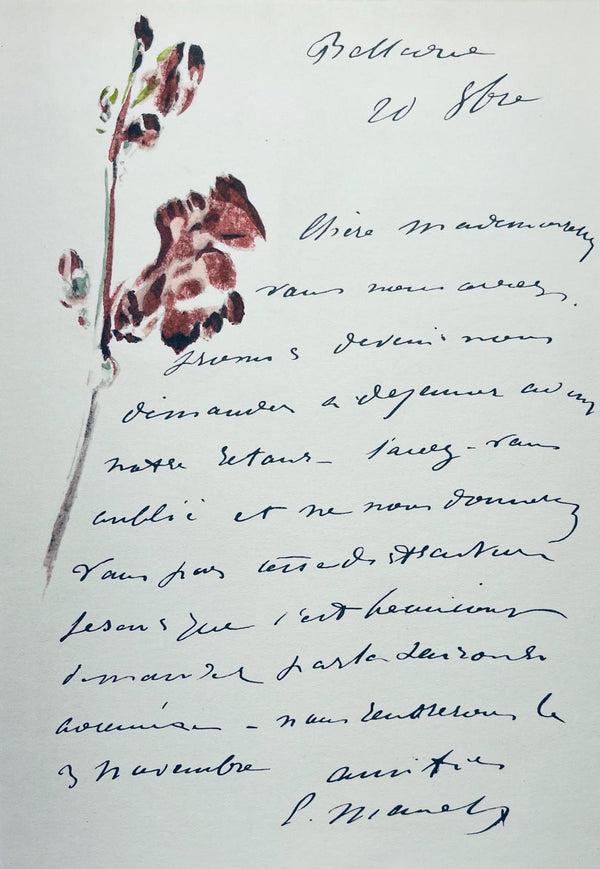 Bellevue
20 8bre
Chère mademoiselle
vous nous aviez
promis de venir nous
demander à déjeuner avant
notre retour – l'avez-vous
oublié et ne nous donnerez
vous pas cette distraction
je sais que c'est beaucoup
demander par la saison
– nous rentrerons le
3 novembre amitiés
E. Manet